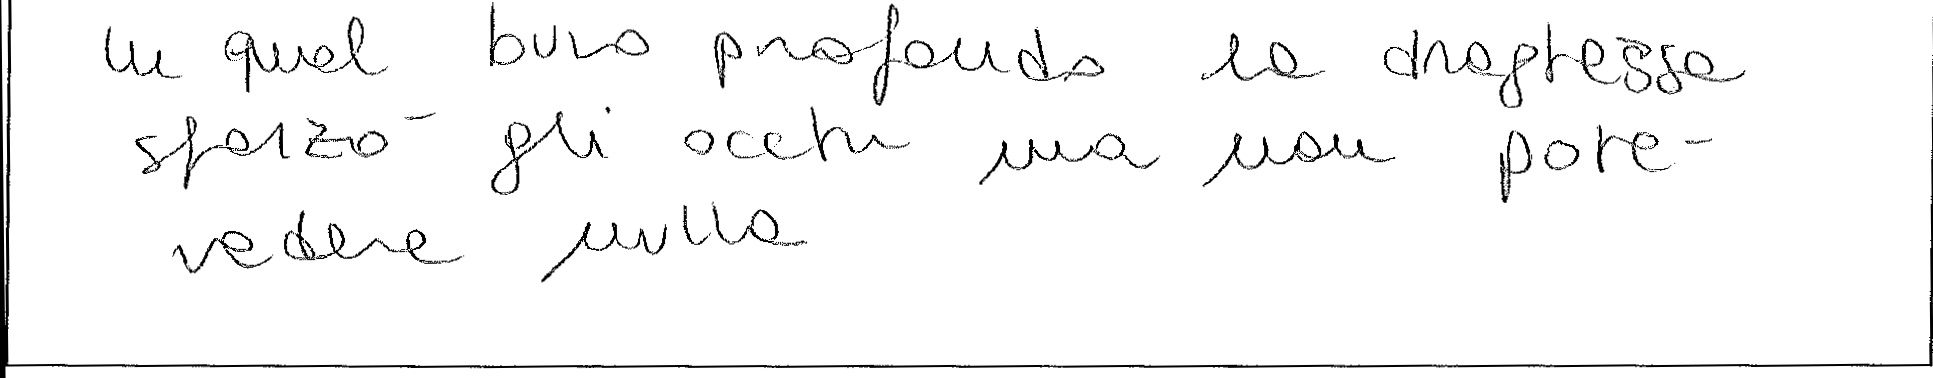 In quel buio profondo la draghessa
sforzò gli occhi ma non pote-
vedere nulla